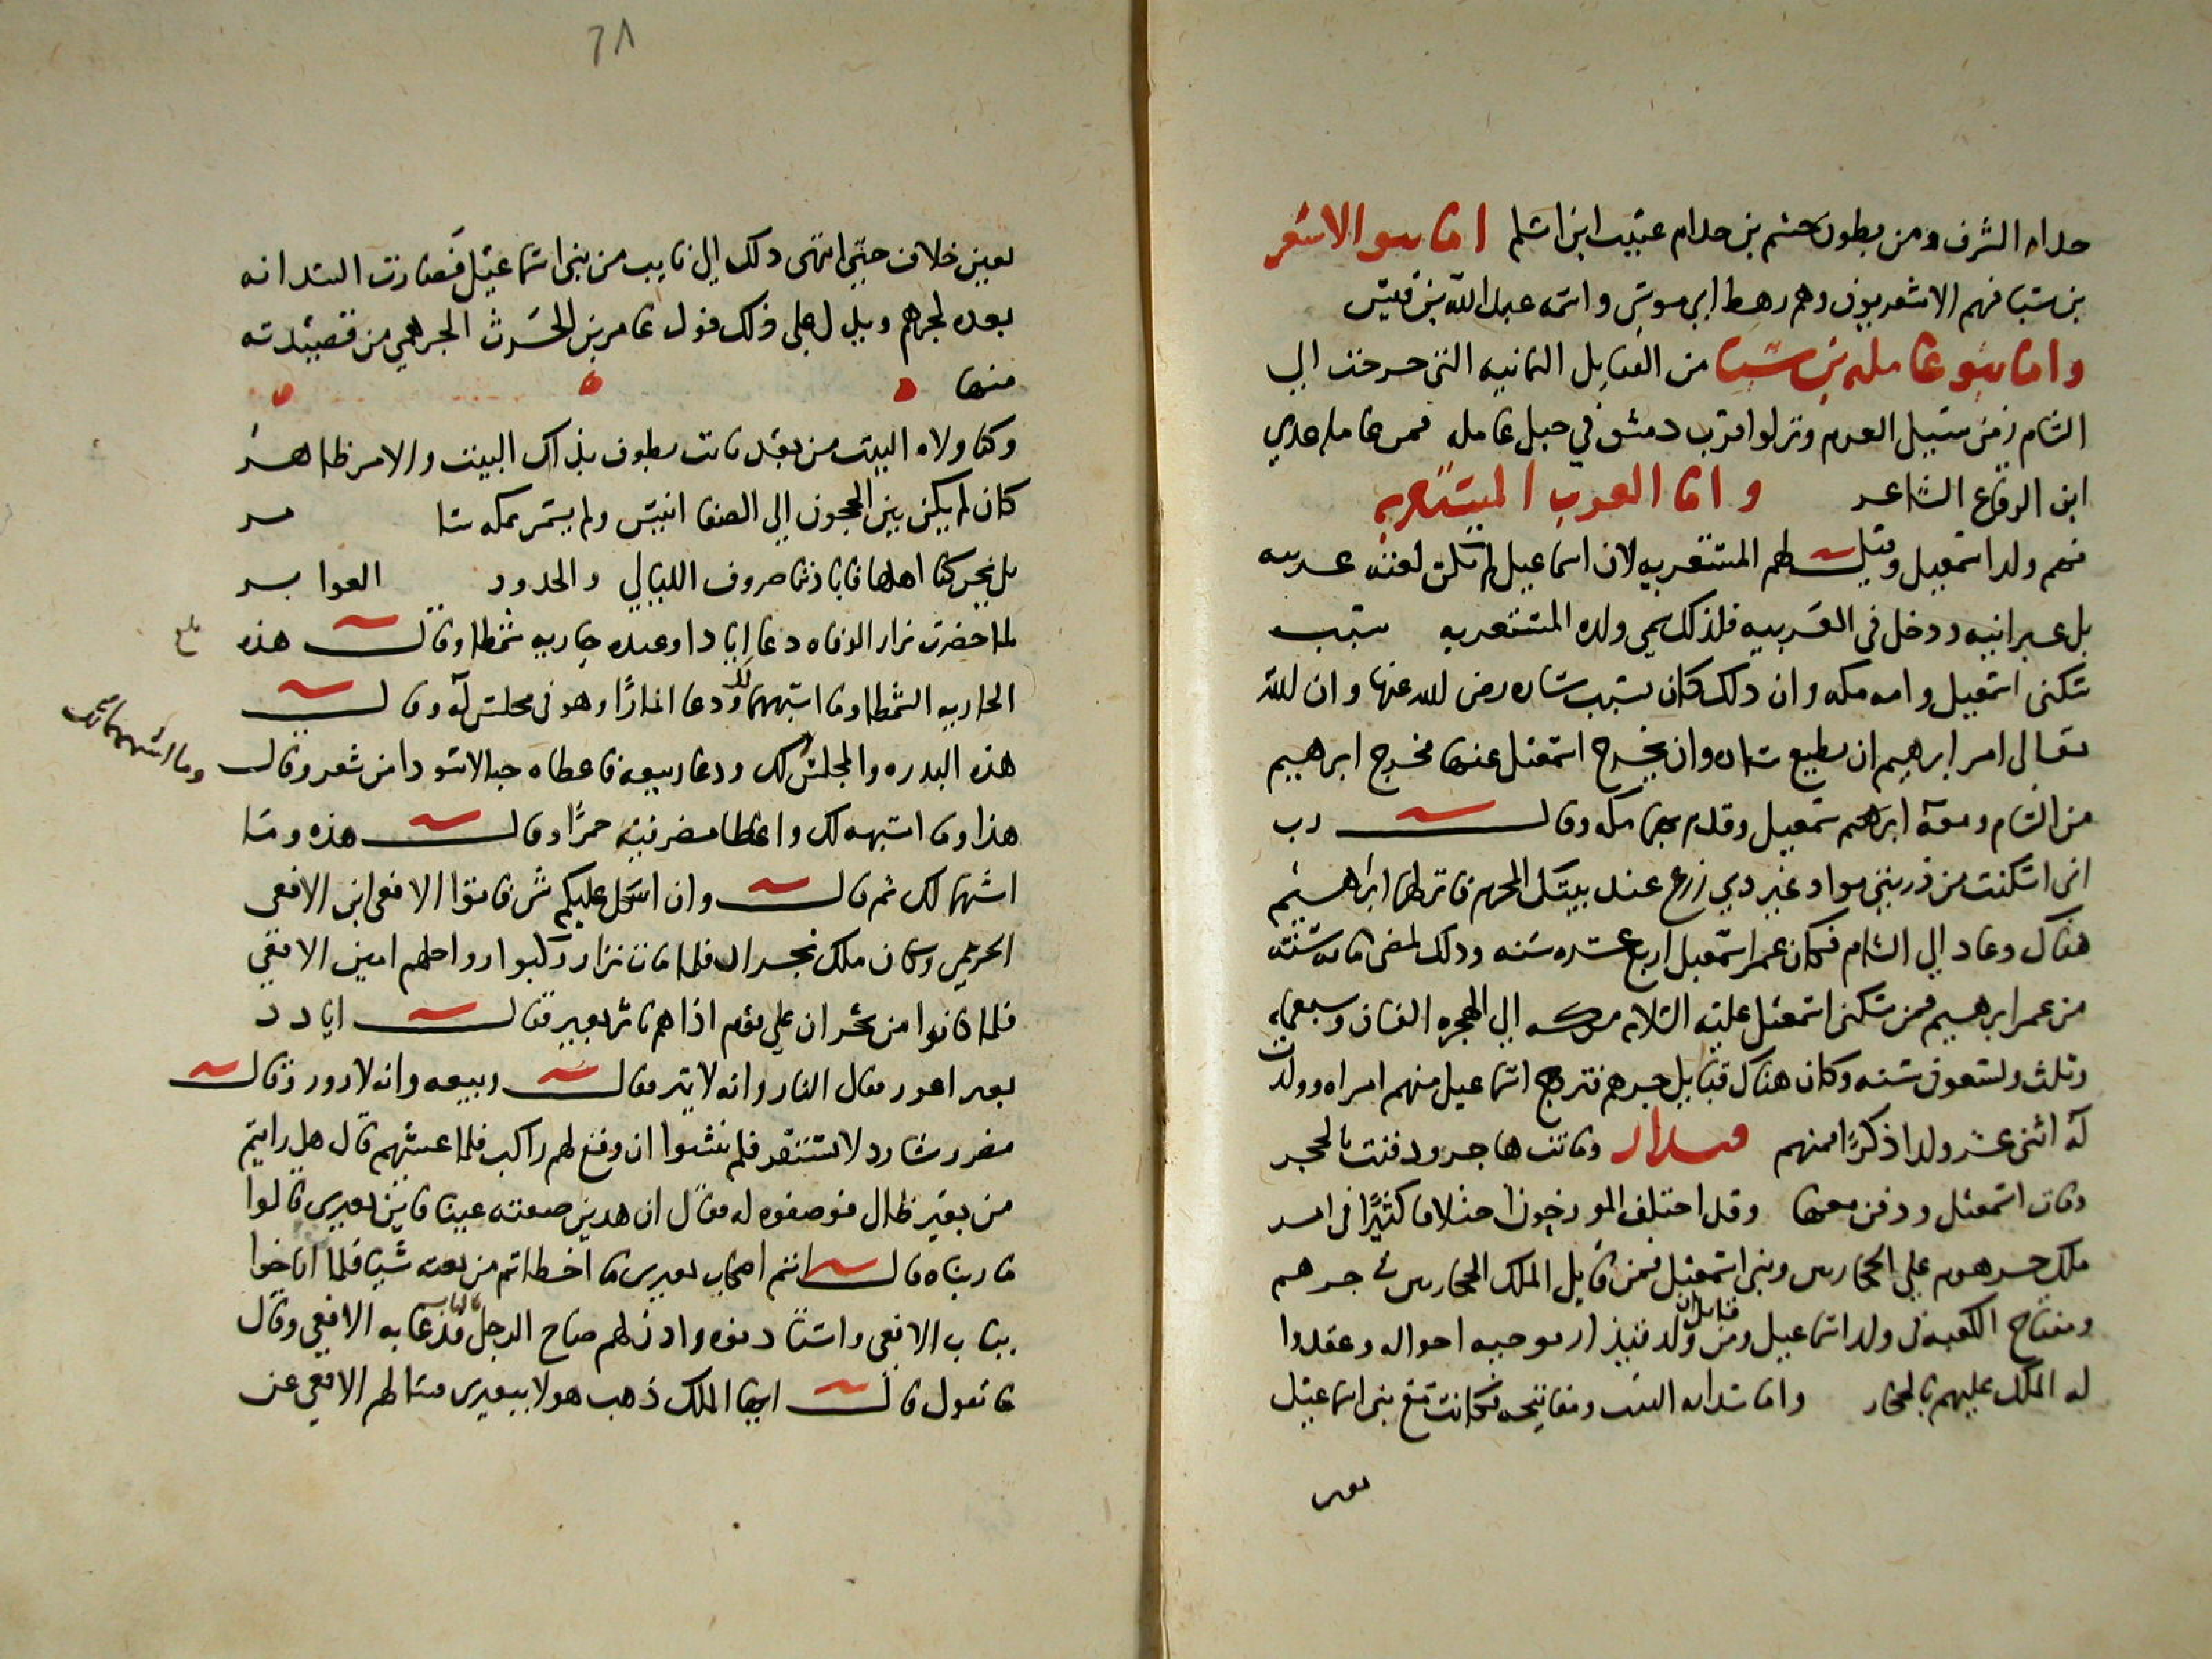 جدام الشرف ومن بطون حشم بن جدام عتيب ابن اسلم اما بنو الاشعر
بن سبا فهم الاشعريون وهم رهط ابي موسى واسمه عبد الله بن قيس
واما بنو عامله بن سبا من القبايل اليمانيه التى خرجت الي
الشام زمن سيل العرم ونزلوا قرب دمشق في جبل عامله فمن عامله عدي
ابن الرقاع الشاعر واما العرب المستعربه
فهم ولد اسمعيل وقيل لهم المستعربه لان اسماعيل لم تكن لغته عربيه
بل عبرانيه ودخل فى العربيه فلذلك سمي ولده المستعربه سبب
سكنى اسمعيل وامه مكه وان ذلك كان بسبب ساره رضى الله عنها وان الله
تعالى امر ابرهيم ان يطيع ساره وان يخرج اسمعيل عنها فخرج ابرهيم
من الشام ومعه ابرهيم سمعيل وقدم بهما مكه وقال رب
انى اسكنت من ذريتي بواد غير ذي زرع عند بيتك المحرم فانزلهما ابراهيم
هناك وعاد الي الشام فكان عمر اسمعيل اربع عشره سنه وذلك لمضى مايه سنه
من عمر ابرهيم فمن سكنى اسمعيل عليه السلام مكه الي الهجره الفان وسبعمايه
وثلث وتسعون سنه وكان هناك قبايل جرهم فتزوج اسماعيل منهم امراه وولدت
له اثنى عشر ولدا ذكرا منهم قيدار وماتت هاجر ودفنت بالحجر
ومات اسمعيل ودفن معها وقد اختلف المورخون اختلافا كثيرا فى امر
ملك جرهم علي الحجاز وبنى اسمعيل فمن قايل الملك الحجاز في جرهم
ومفتاح الكعبه فى ولد اسماعيل ومن قايل ان ولد قيدار توجبه احواله وعقدوا
له الملك عليهم بالحجاز واما سدانه البيت ومفاتيحه فكانت مع بنى اسماعيل
بغير
٦٨
بغير خلاف حتى انتهى ذلك الي نابت من بنى اسماعيل فصارت السدانه
بعده لجرهم ويدل علي ذلك قول عامر بن الحرث الجرهمي من قصيدته
منها
وكنا ولاه البيت من بعد نابت نطوف بذاك البيت والامر ظاهر
كان لم يكن بين الحجون الي الصفا انيس ولم يسمر بمكه سامر
بل نحن كنا اهلها فابادنا صروف الليالي والجدود العواثر
لما حضرت نزار الوفاه دعا ايادا وعنده جاريه شمطا وقال هذه
الجاريه الشمطا وما اشبهها لك ودعا انمارا وهو فى مجلس له وقال
هذه البدره والمجلس لك ودعا ربيعه فاعطاه حبالا سودا من شعر وقال
وما اشبهها لك
هذا وما اشبهه لك واعطا مضر قبه حمرا وقال هذه وما
اشبهها لك ثم قال وان اشكل عليكم شى فاتوا الافعى ابن الافعى
الجرهمي وكان ملك نجران فلما مات نزار ركبوا رواحلهم امين الافعي
فلما كانوا من نجران علي يوم اذا هم باثر بعير فقال اياد
بعير اعور فقال انمار وانه لابتر فقال ربيعه وانه لازور وقال
مضر وشارد لا يستقر فلم ينشبوا ان وقع لهم راكب فلما غشيهم قال هل رايتم
من بعير ضال فوصفوه له فقال ان هذه صفته عينا فاين بعيرى قالوا
ما رايناه قال انتم اصحاب بعيرى ما اخطاتم من نعته شيا فلما اناخوا
بباب الافعى واستاذنوه واذن لهم صاح الرجل بالباب فدعا به الافعي وقال
ما تقول قال ايها الملك ذهب هولا ببعيرى فسالهم الافعي عن